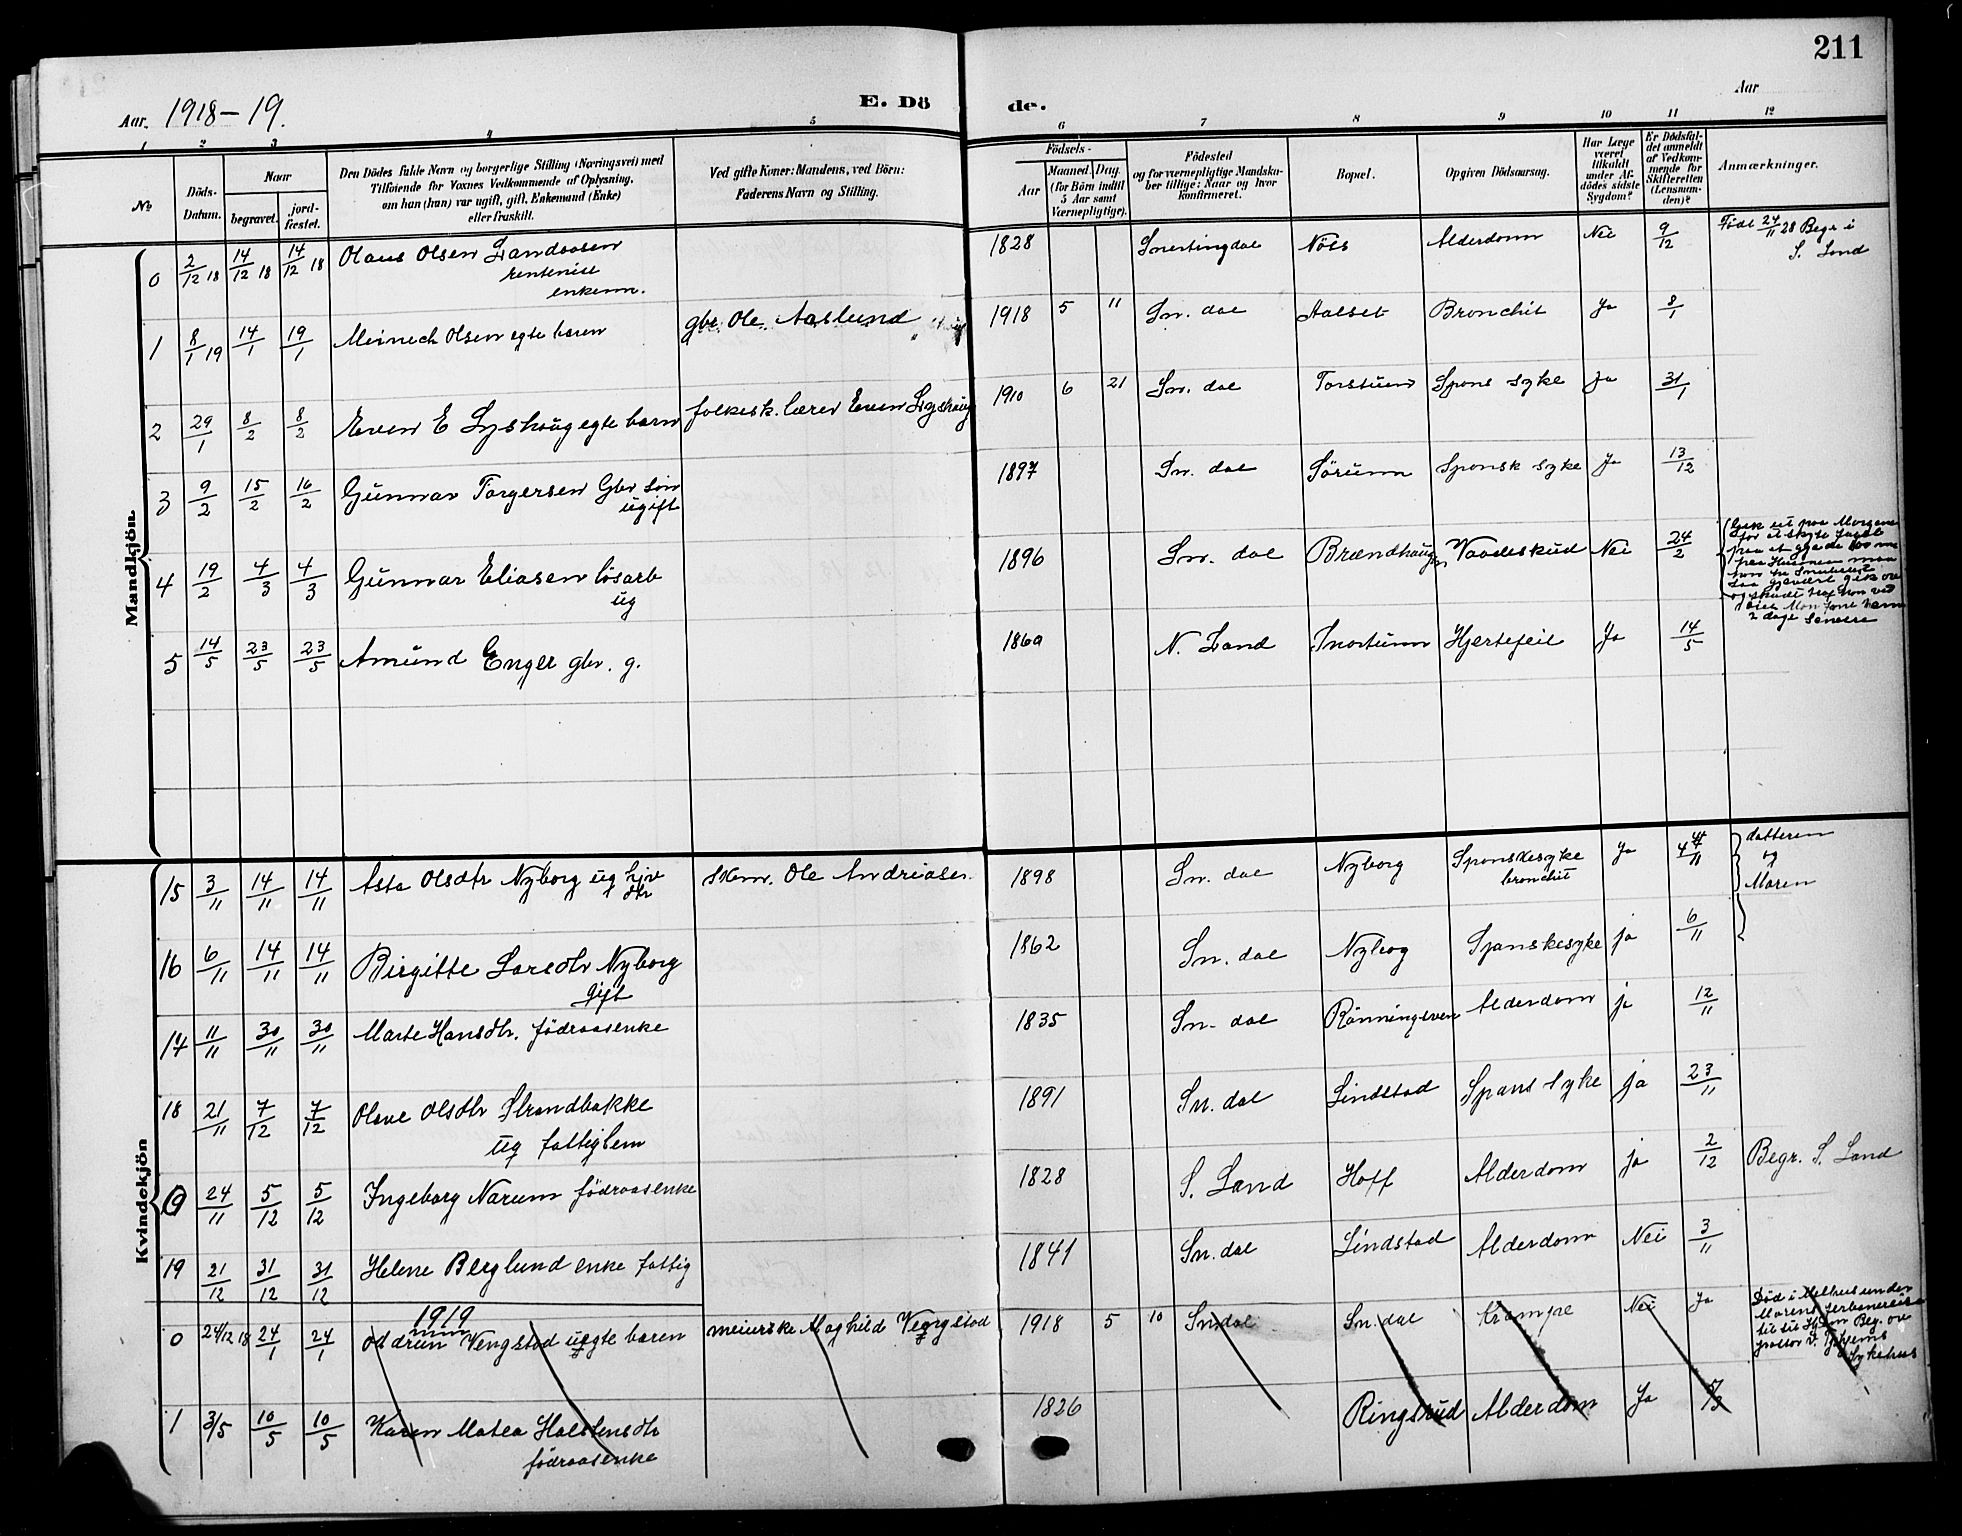 211
Aar. 1918-19. E. Dö de. Aar
1 2 3 4 5 6 7 8 9 10 11 12
№
Döds-Datum.
Naar
begravet.
jord-fæstet.
Den Dödes fulde Navn og borgerlige Stilling (Næringsvei) med
Tilföiende for Voxnes Vedkommende af Oplysning,
om han (hun) var ugift, gift, Enkemand (Enke)
eller fraskilt.
Ved gifte Koner: Mandens, ved Börn:
Faderens Navn og Stilling.
Födsels-
Aar
Maaned. Dag.
(for Börn indtil
5 Aar samt
Værnepligtige).
Födested
og for værnepligtige Mandska-
ber tillige: Naar og hvor
konfirmeret.
Bopæl.
Opgiven Dödsaarsag.
Har Læge
været
tilkaldt
under Af-
dödes sidste
Sygdom?
Er Dödsfal-
det anmeldt
af Vedkom-
mende for
Skifteretten
(Lensman-
den)?
Anmærkninger.
Mandkjön.
0 2/12 18 14/12 18 14/12 18 Olaus Olsen Landsosen 1828 Snertingdal Nöss Alderdom Nei 9/12 Födt 24/11 28 Begr i
rentenist S. Land
enkem.
1 8/1 19 14/1 19/1 Meinech Olsen egte barn gbr. Ole Aaslund 1918 5 11 Sn. dal Aalset Bronchit Ja 8/1
2 29/1 8/2 8/2 Even E Lyshaug egte barn folkesk. lærer Even Lyshaug 1910 6 21 Sn. dal Spans syke Ja 31/1
3 9/2 15/2 16/2 Gunnar Torgersen Gbr sön 1897 Sn. dal Sörum Spansk syke Ja 13/12
ugift
4 19/2 4/3 4/3 Gunnar Eliasen lösarb 1896 Sn. dal Brændhaugen Vaadeskud Nei 24/2
ug
2 dage senere
5 14/5 23/5 23/5 Amund Enger gbr. g. 186 N. Land Hjertefeil Ja 14/5
Kvindekjön
15 3/11 14/11 14/11 Asta Olsdtr Nyborg ug hjv Ole Andreasen 1898 Sn. dal Nyborg Spanskesyke Ja 4/11 datteren
dtr bronchit og
Moren
16 6/11 14/11 14/11 Birgitte Larsdtr Nyborg 1862 Sn. dal Nyborg Spanskesyke ja 6/11
gift
17 11/11 30/11 30/11 Marte Hansdtr. födraasenke 1835 Sn. dal Rönningsven Alderdom ja 12/11
18 21/11 7/12 7/12 Olave Olsdtr Strandbakke 1891 Sn. dal Lindstad Spans syke ja 23/11
ug fattiglem
24/11 5/12 5/12 Ingeborg Narum födraasenke 1828 S. Land Hoff Alderdom ja 2/12 Begr. S. Land
19 21/12 31/12 31/12 Helene Berglund enke fattig 1841 Sn. dal Lindstad Alderdom Nei 3/11
1919
0 24/12 18 24/1 24/1 Oddrun Vengstad uegte barn meierske Maghild Vengstad 1918 5 10 Sn. dal Sn. dal Krampe Nei Ja Död i Melhus under
Sykehus
1 3/5 10/5 10/5 Karen Matea Halstensdtr 1826 Ringsrud Alderdom Ja 5/3
födraasenke